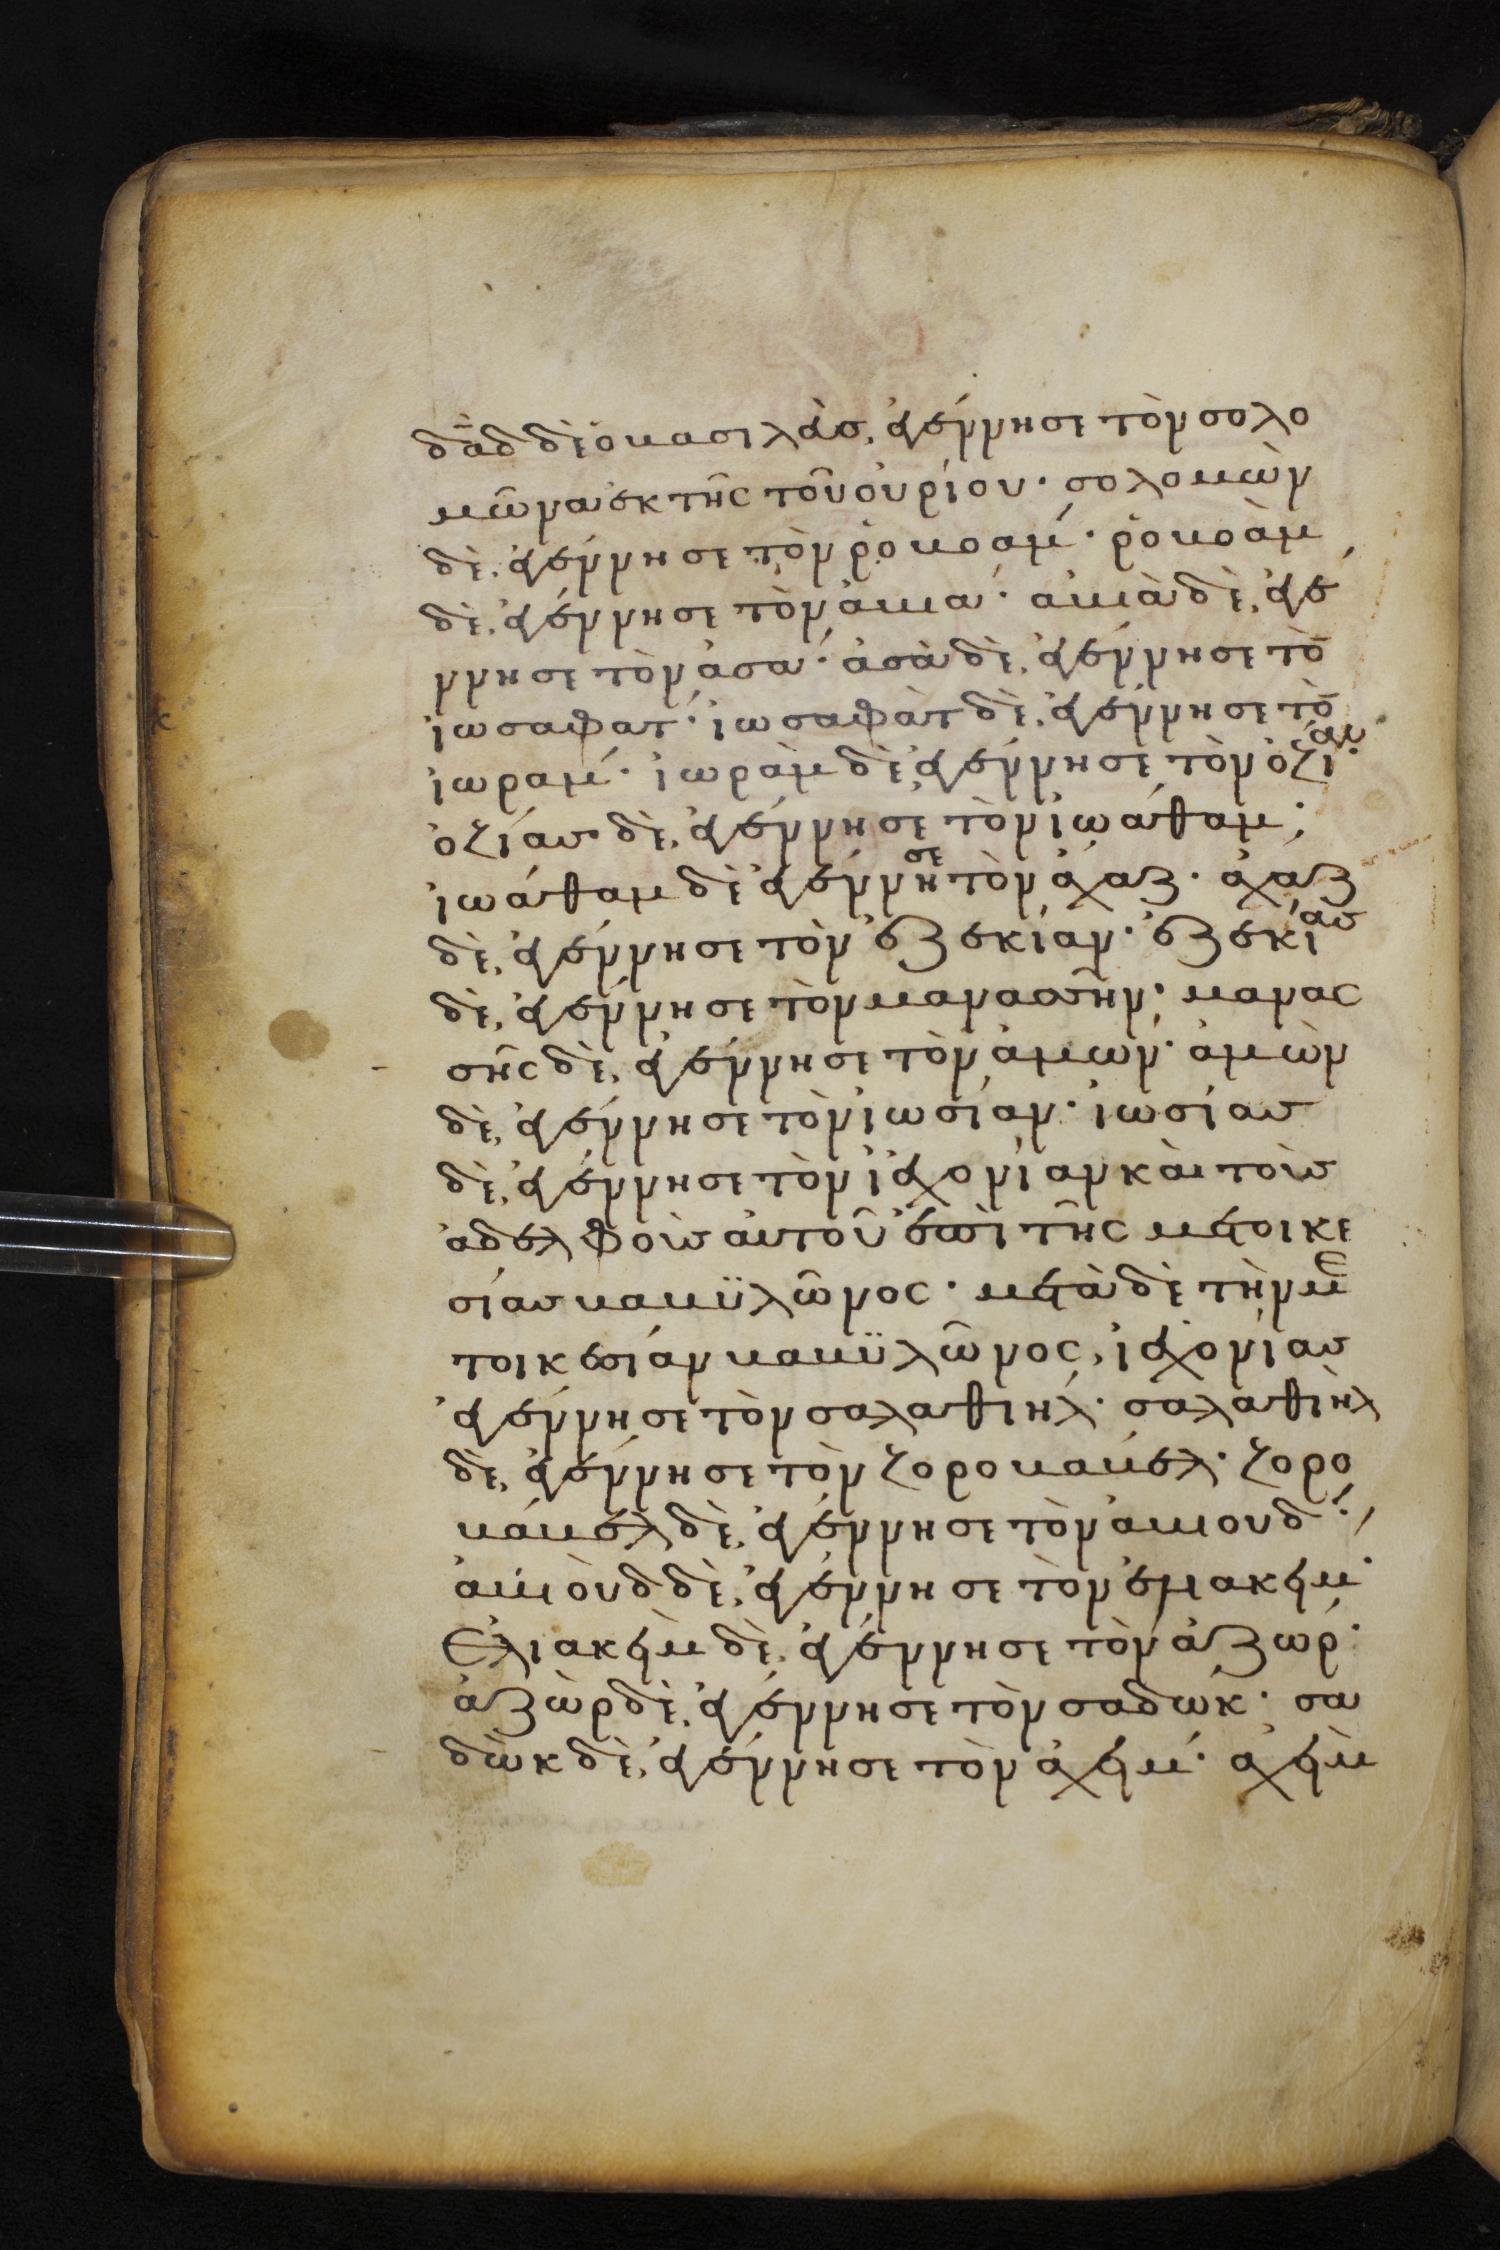 δᾱδ δὲ ὁ βασιλεὺσ, ἐγέννησε τὸν σολο
μῶνα ἐκ τῆς τοῦ οὐρίου· σολομὼν
δὲ, ἐγέννησε τὸν ῥοβοάμ· ῥοβοὰμ
δὲ, ἐγέννησε τὸν ἀβιά· ἀβιὰ δὲ, ἐγέ
ννησε τὸν ἀσά· ἀσὰ δὲ, ἐγέννησε τὸ̄
ἰωσαφάτ· ἰωσαφὰτ δὲ, ἐγέννησε τὸ̄
ἰωράμ· ἰωρὰμ δὲ, ἐγέννησε τὸν ὀζίαν·
ὀζίας δὲ, ἐγέννησε τὸν ἰωάθαμ·
ἰωάθαμ δὲ ἐγέννησε τὸν ἄχαζ· ἄχαζ
δὲ, ἐγέννησε τὸν ἐζεκίαν· ἐζεκίας
δὲ, ἐγέννησε τὸν μανασσῆν· μανας
σῆς δὲ, ἐγέννησε τὸν ἀμών· ἀμὼν
δὲ, ἐγέννησε τὸν ἰωσίαν· ἰωσίας
δὲ, ἐγέννησε τὸν ἰεχονίαν καὶ τοὺς
ἀδελφοὺς αὐτοῦ ἐπὶ τῆς μετοικε
σίας βαβϋλῶνος· μετὰ δὲ τὴν με
τοικεσίαν βαβϋλῶνος, ἰεχονίας
ἐγέννησε τὸν σαλαθιήλ· σαλαθιὴλ
δὲ, ἐγέννησε τὸν ζοροβαβέλ· ζορο
βάβελ δὲ, ἐγέννησε τὸν ἀβιούδ·
ἀβιοὺδ δὲ, ἐγέννησε τὸν ἐλιακείμ·
Ἐλιακεὶμ δὲ, ἐγέννησε τὸν ἀζώρ·
ἀζὼρ δὲ, ἐγέννησε τὸν σαδώκ· σα
δὼκ δὲ, ἐγέννησε τὸν ἀχείμ· ἀχεὶμ